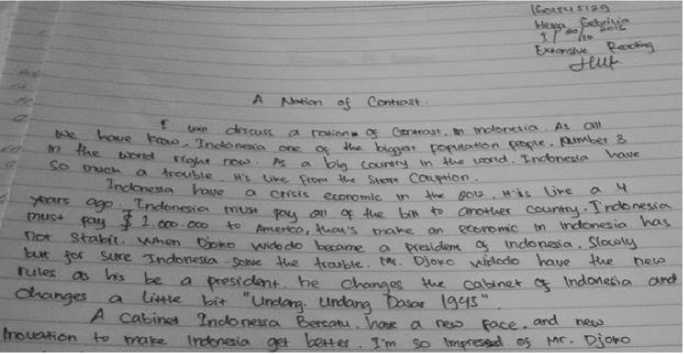 Extensive Reading
A Nation of Contrast.
I will discuss a nation of Contrast. In Indonesia. As all
we have know, Indonesia one of the bigger population people, number 3
in the world right now. As a big country in the world. Indonesia have
so much a trouble. It's like from the Store Couption.
Indonesia have a crisis economic in the 2012. It is like a 4
years ago. Indonesia must pay all of the bill to another country. Indonesia
must pay $ 1.000.000 to America, that's make an economic in Indonesia has
not stabil. When Djoko widodo became a president of Indonesia. Slowly
but for sure Indonesia solve the trouble. Mr. Djoko widodo have the new
rules as his be a president. he changes the cabinet of Indonesia and
changes a little bit "Undang. Undang Dasar 1945".
A Cabinet Indonesia Bersatu. have a new face. and new
inovation to make Indonesia get better. I'm so impressed of Mr. Djoko